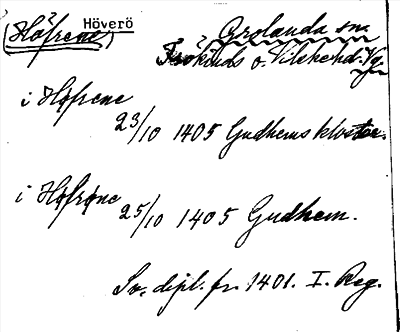 (Höfrene) Höverö Grolanda sn.
Frökinds o. Vilskehd. Vg.
i Hofrene
23/10 1405 Gudhems kloster.
i Hofrone
25/10 1405 Gudhem.
Sv. dipl. fr. 1401. I. Reg.